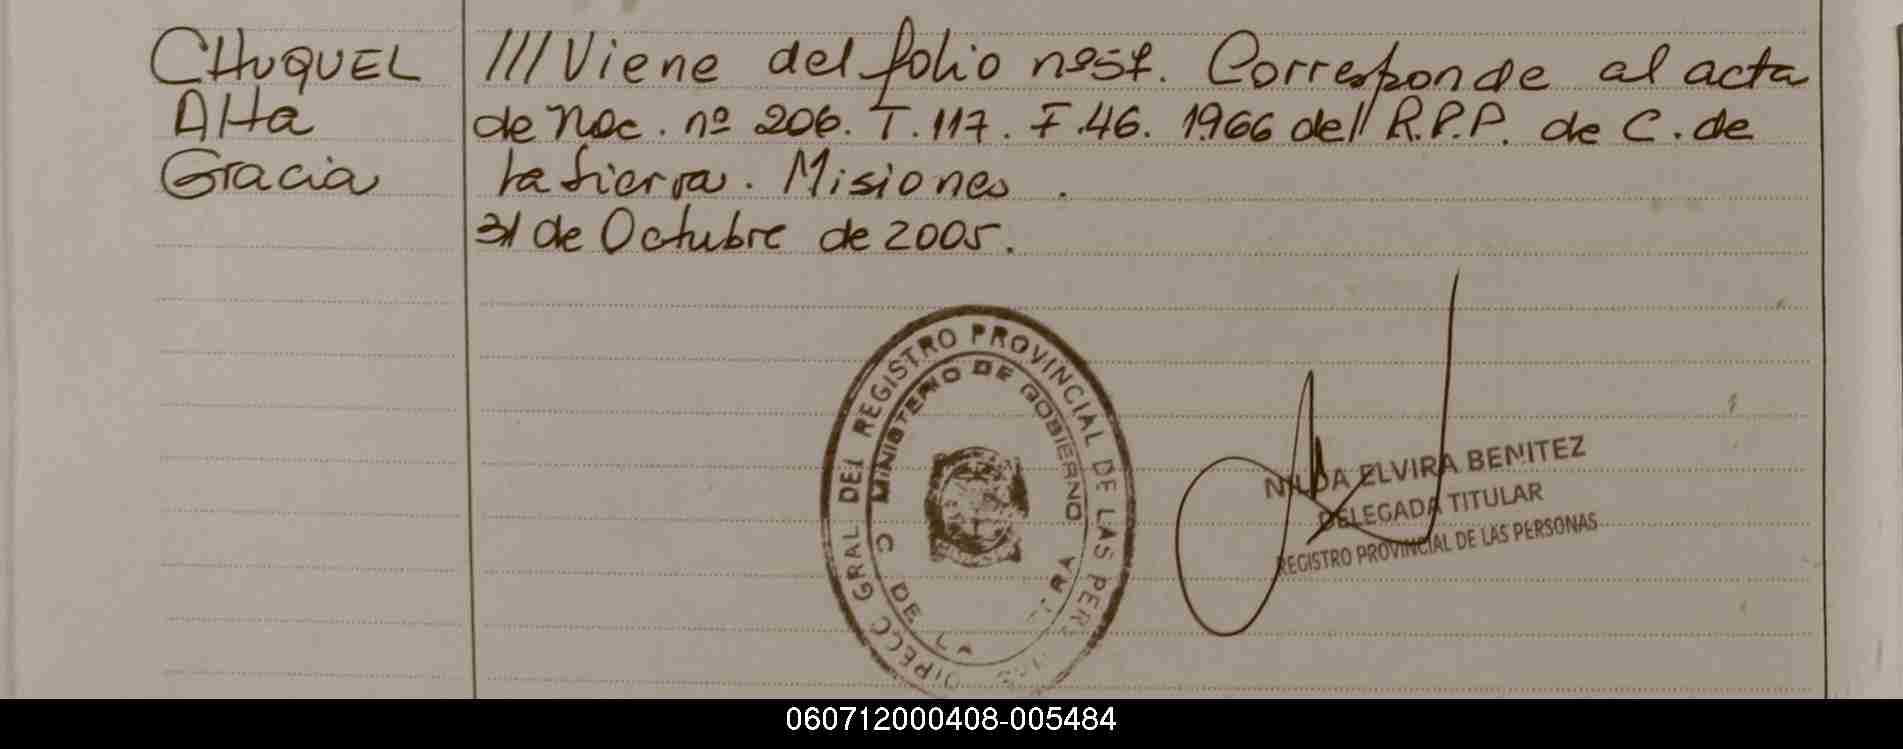 CHUQUEL
Alta
Gracia
///Viene del folio nº57. Corresponde al acta
de Nac. nº 206. T.117. F.46. 1966 del R.P.P. de C. de
la Sierra. Misiones.
31 de Octubre de 2005.
DIRECC GRAL DEL REGISTRO PROVINCIAL DE LAS PER
MINISTERIO DE GOBIERNO
C DE LA RRA
NILDA ELVIRA BENITEZ
DELEGADA TITULAR
REGISTRO PROVINCIAL DE LAS PERSONAS
060712000408-005484